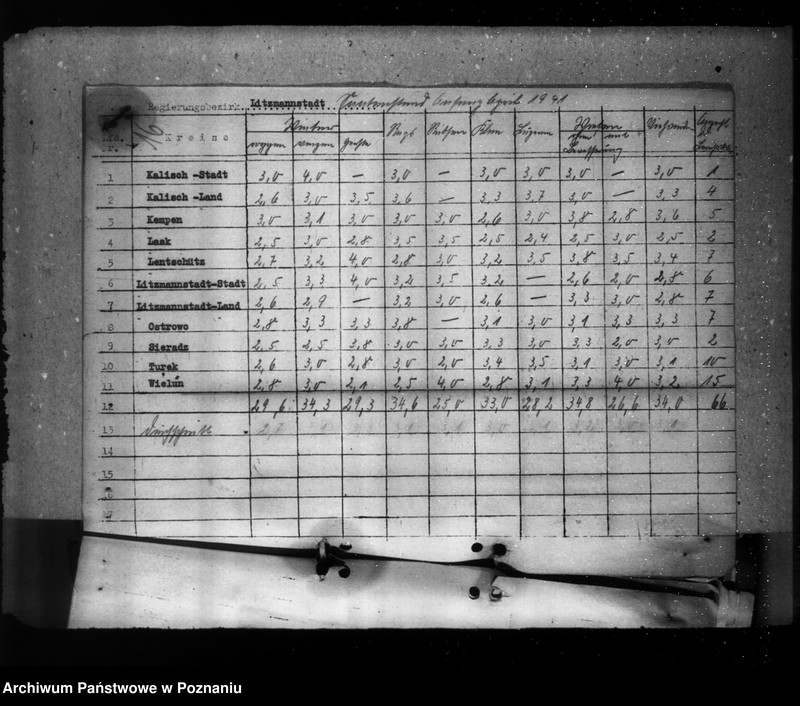 Regierungsbezirk. Litzmannstadt Saatenstand Anfang April 1941
Lfd. Kreise Winter Raps Rübsen Klee Luzerne Wiesen
Nr. roggen weizen gerste Bewässerung
1 Kalisch -Stadt 3,0 4,0 — 3,0 — 3,0 3,0 3,0 — 3,0 1
2 Kalisch -Land 2,6 3,0 3,5 3,6 — 3,3 3,7 3,0 — 3,3 4
3 Kempen 3,0 3,1 3,0 3,0 3,0 2,6 3,0 3,8 2,8 3,6 5
4 Lask 2,5 3,0 2,8 3,5 3,5 2,5 2,4 2,5 3,0 2,5 2
5 Lentschütz 2,7 3,2 4,0 2,8 3,0 3,2 3,5 3,8 3,5 3,4 7
6 Litzmannstadt-Stadt 2,5 3,3 4,0 3,2 3,5 3,2 — 2,6 2,0 2,8 6
7 Litzmannstadt-Land 2,6 2,9 — 3,2 3,0 2,6 — 3,3 3,0 2,8 7
8 Ostrowo 2,8 3,3 3,3 3,8 — 3,1 3,0 3,1 3,3 3,3 7
9 Sieradz 2,5 2,5 3,8 3,0 3,0 3,3 3,0 3,3 2,0 3,0 2
10 Turek 2,6 3,0 2,8 3,0 2,0 3,4 3,5 3,1 3,0 3,1 10
11 Wielun 2,8 3,0 2,1 2,5 4,0 2,8 3,1 3,3 4,0 3,2 15
12 29,6 34,3 29,3 34,6 25,0 33,0 28,2 34,8 26,6 34,0 66
13 Durchschnitt 2,7
14
15
16
17
Archiwum Państwowe w Poznaniu